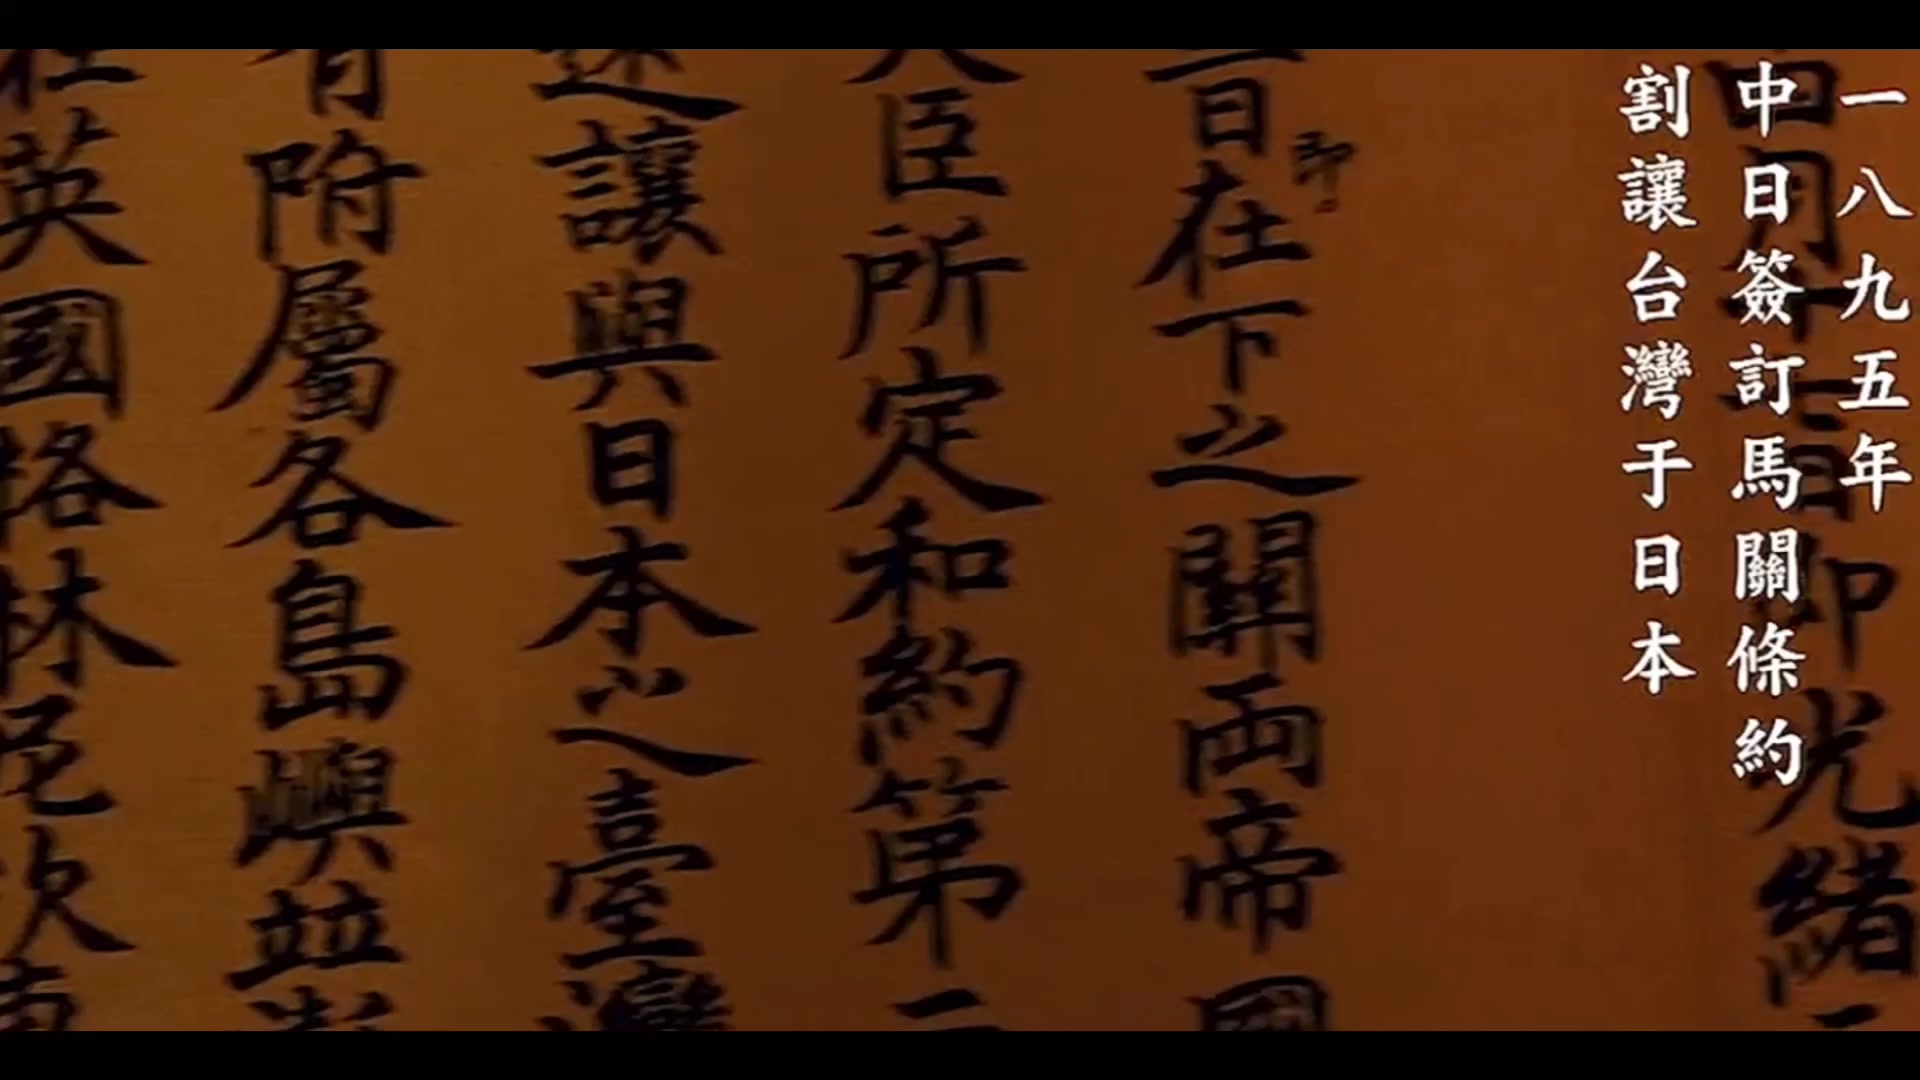 一八九五年
中日簽訂馬關條約
割讓台灣于日本
四月十七日即光緒二
日在下之關兩帝國
即
大臣所定和約第二
讓與日本之臺灣
有附屬各島嶼並澎
在英國格林尼次東